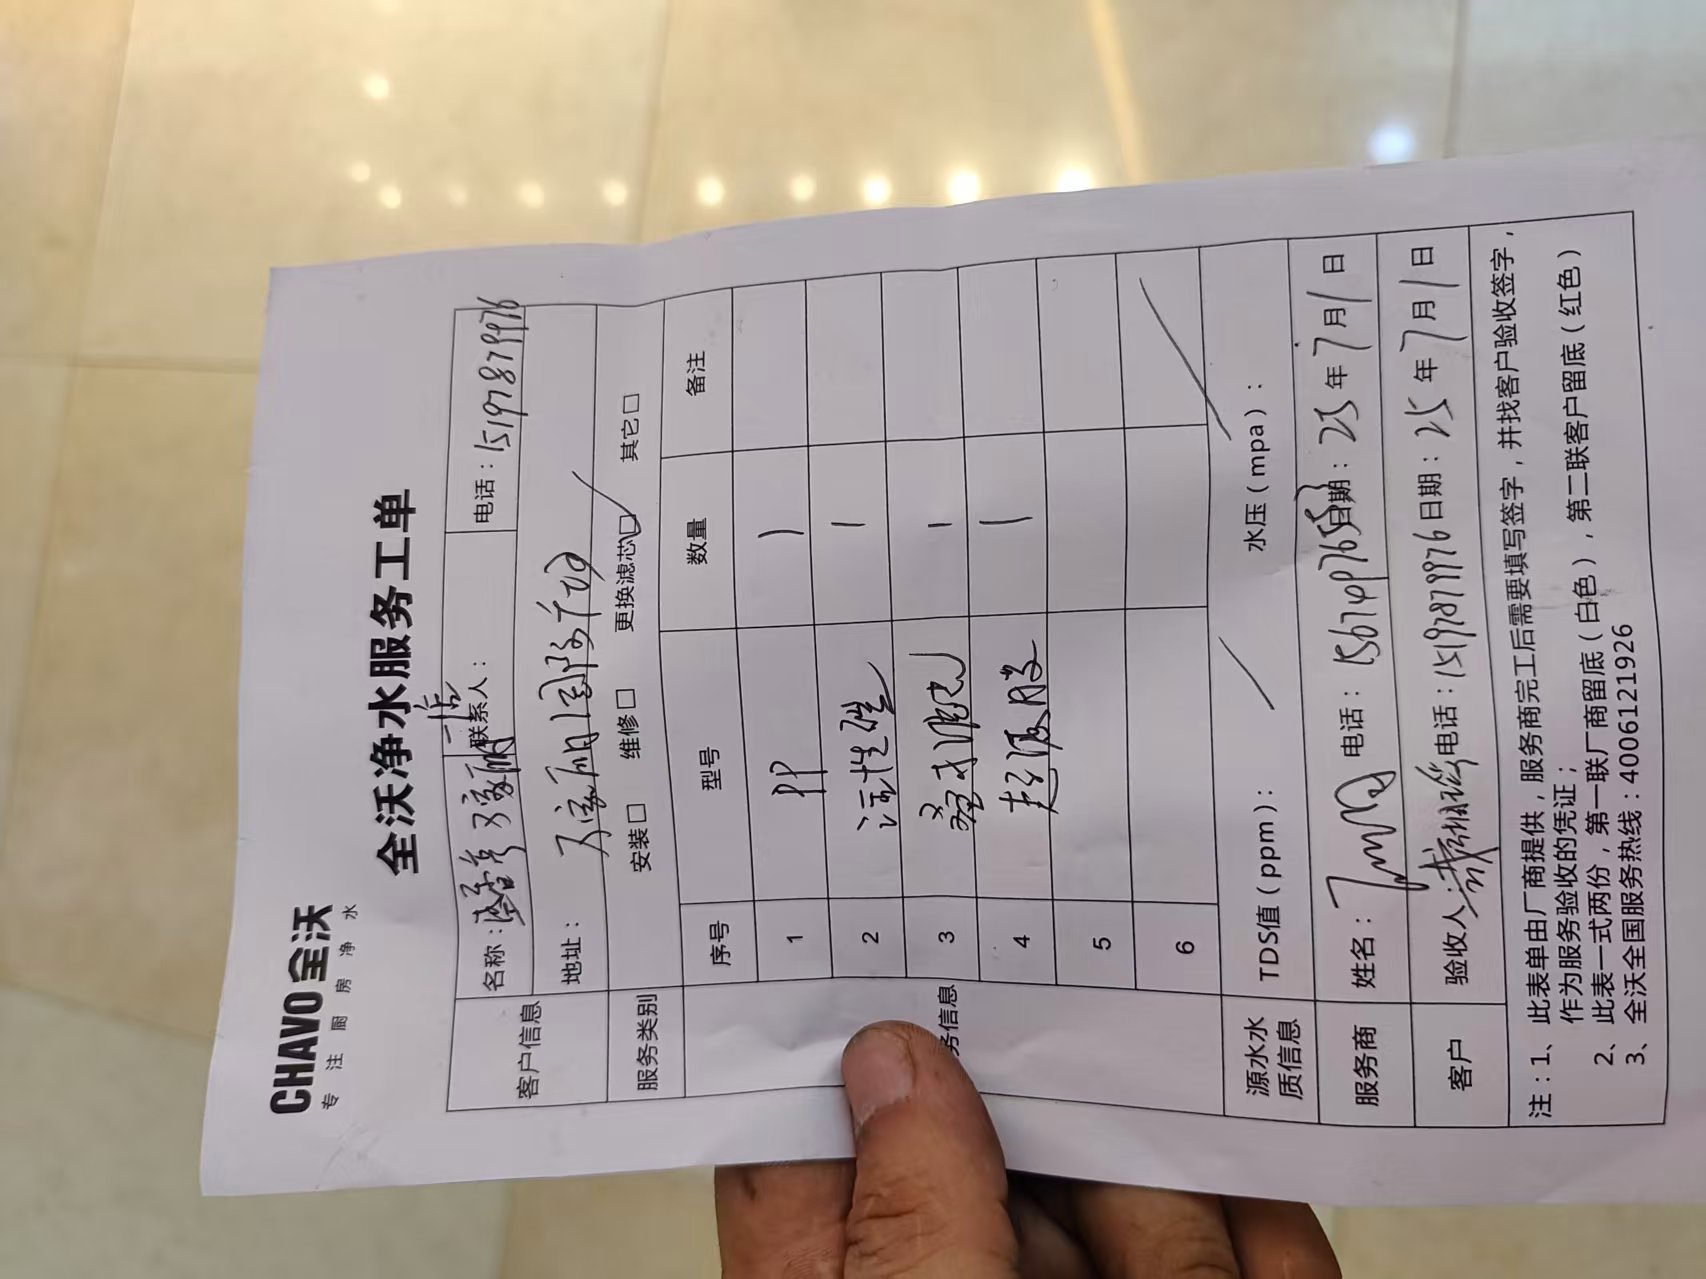 CHAVO全沃
专注厨房净水
全沃净水服务工单
客户信息
名称: 联系人: 电话:15197879976
地址: 国际广场
服务类别 安装□ 维修□ 更换滤芯□ 其它□
务信息
序号 型号 数量 备注
1 PP 1
2 活性碳 1
3 1
4 超滤膜 1
5
6
源水水质信息 TDS值(ppm): 水压(mpa):
服务商 姓名: 电话: 日期: 25年7月1日
客户 验收人: 电话:15197879976 日期:25年7月1日
注:1、此表单由厂商提供,服务商完工后需要填写签字,并找客户验收签字,
作为服务验收的凭证;
2、此表一式两份,第一联厂商留底(白色),第二联客户留底(红色)
3、全沃全国服务热线:4006121926